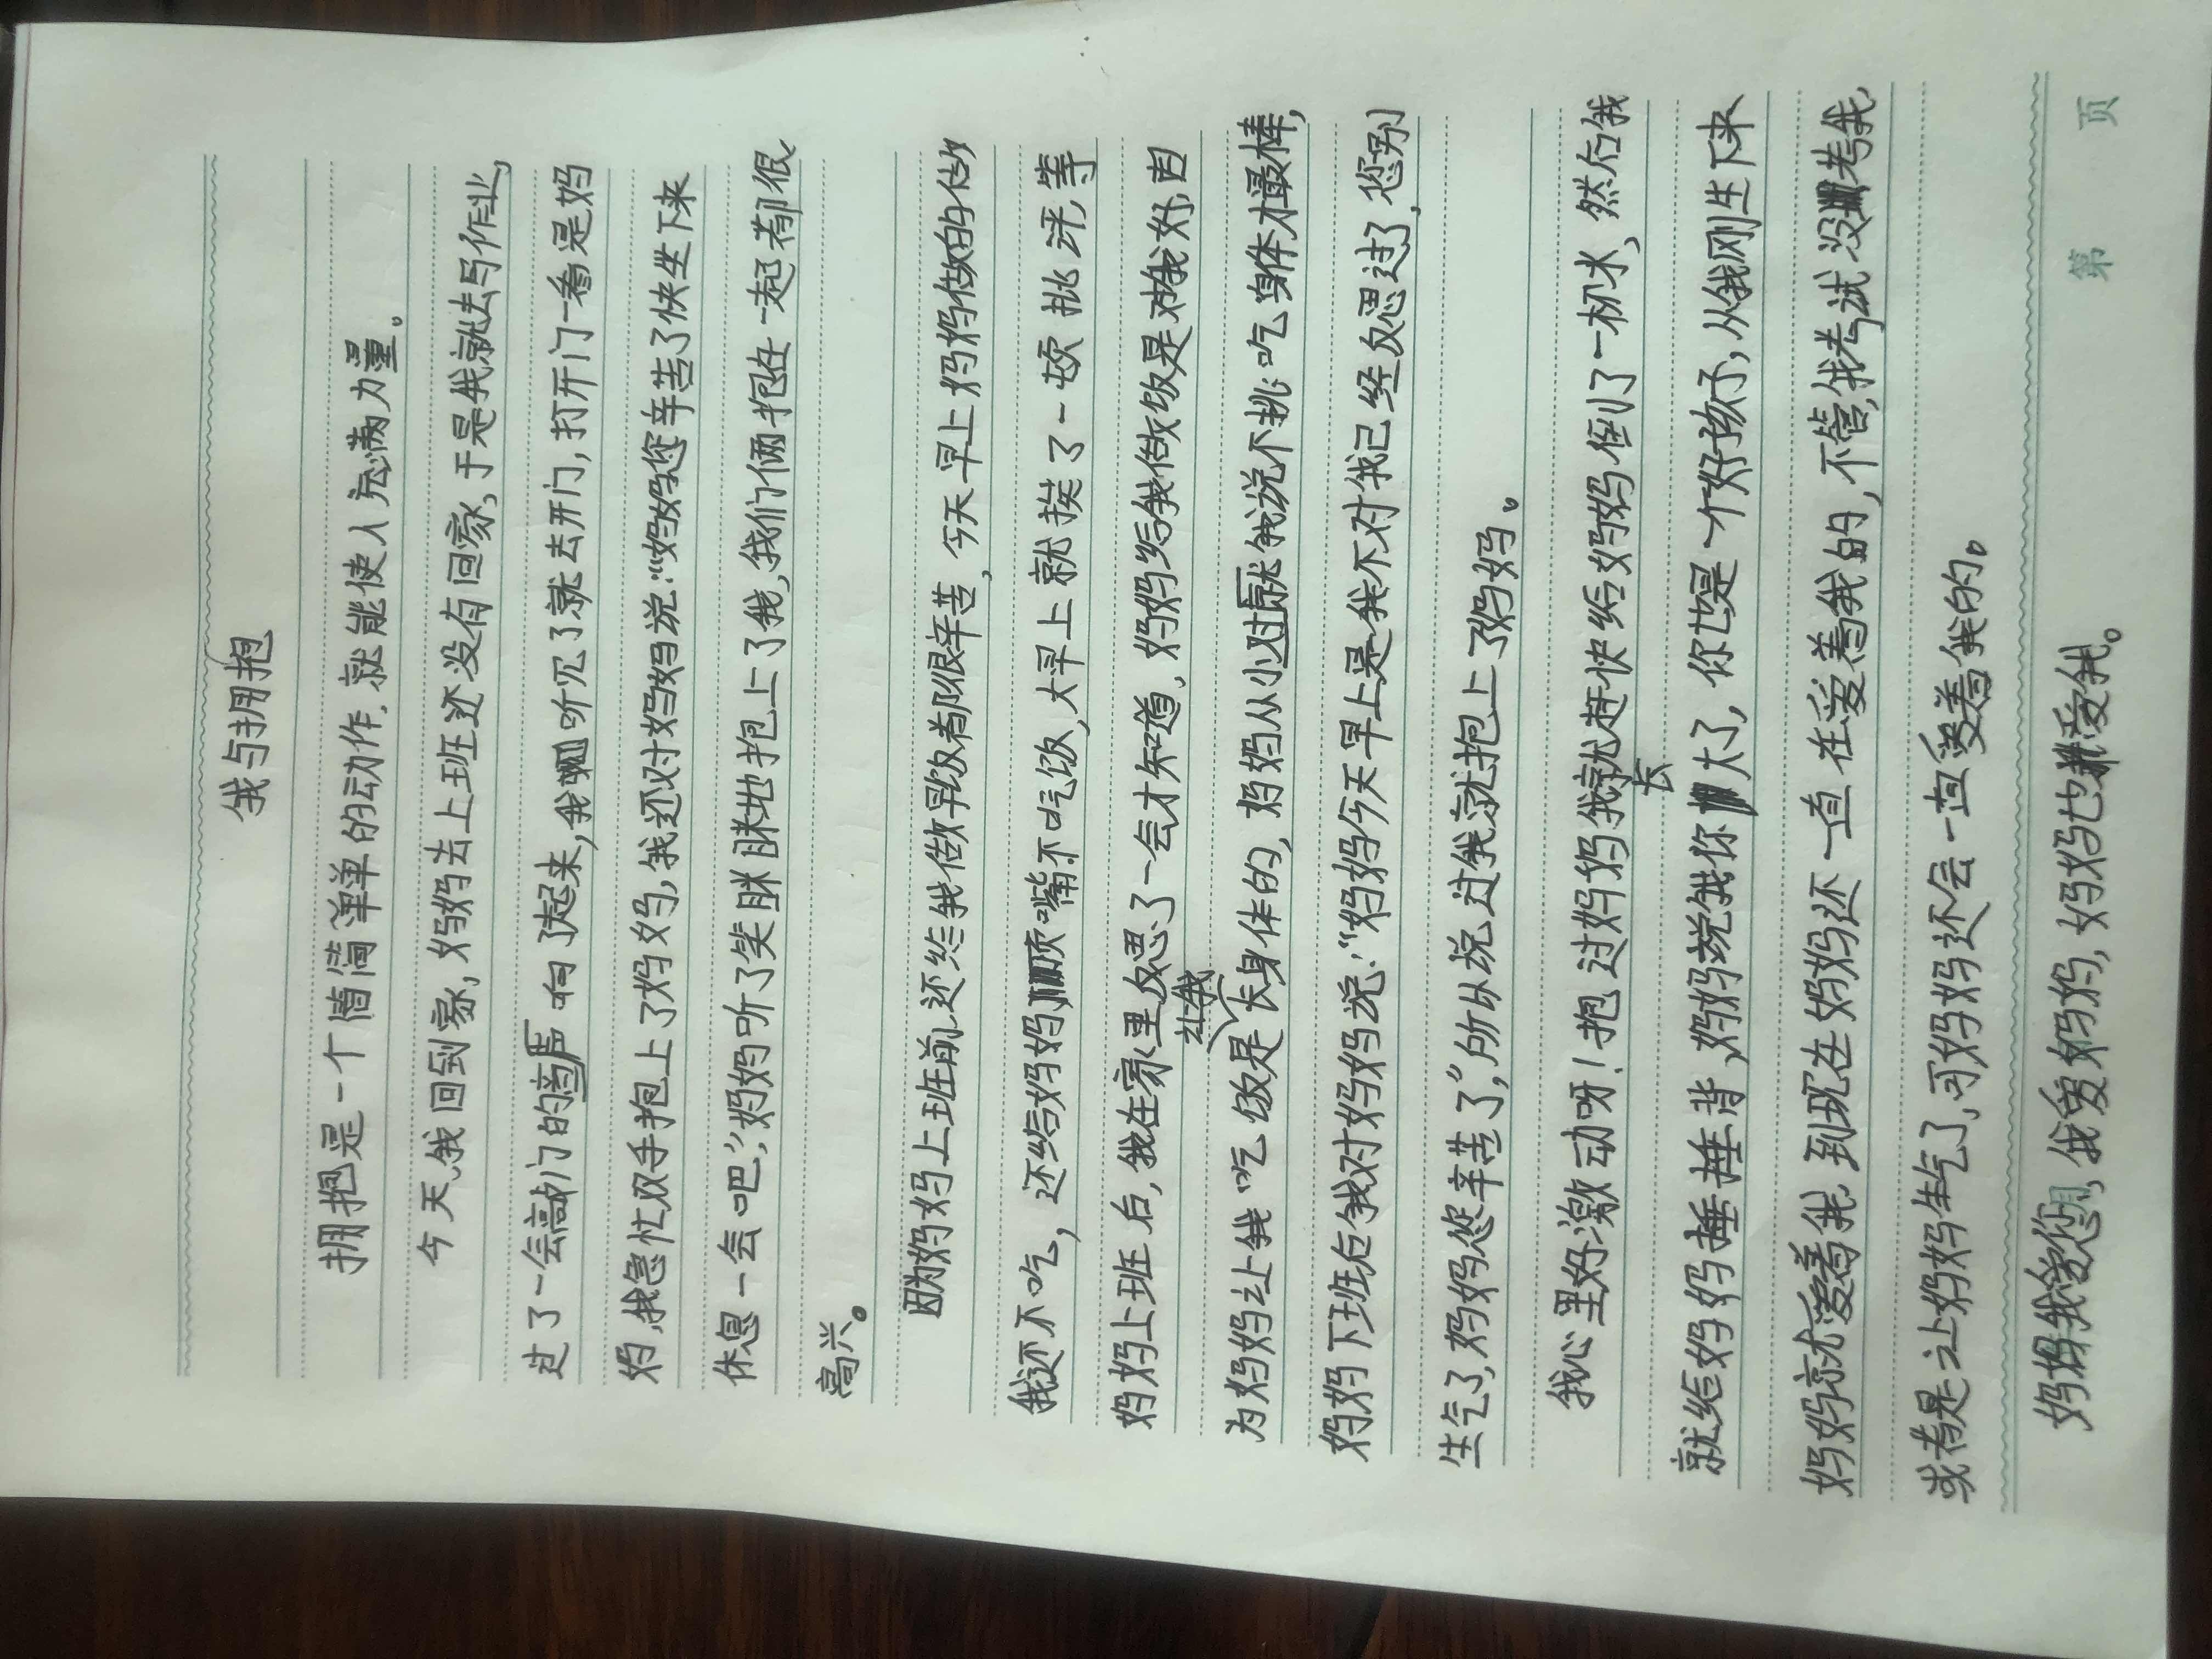 我与拥抱
拥抱是一个简简单单的动作，就能使人充满力量。
今天，我回到家，妈妈去上班还没有回家，于是我就去写作业，
过了一会敲门的声响了起来，我听见了就去开门，打开门一看是妈
妈，我急忙双手抱上了妈妈，我还对妈妈说：“妈妈您辛苦了快坐下来
休息一会吧，”妈妈听了笑眯眯地抱上了我，我们俩抱在一起都很
高兴。
因为妈妈上班前还给我做早饭都很辛苦，今天早上妈妈做的饭
我还不吃，还给妈妈顶嘴不吃饭，大早上就挨了一顿批评，等
妈妈上班后，我在家里反思了一会才知道，妈妈给我做饭是对我好，因
为妈妈让我吃饭是让我长身体的，妈妈从小对我说不挑吃身体才最棒，
妈妈下班后我对妈妈说：“妈妈今天早上是我不对我已经反思过了，您别
生气了，妈妈您辛苦了，”所以说过我就抱上了妈妈。
我心里好激动呀！抱过妈妈我就赶快给妈妈倒了一杯水，然后我
就给妈妈捶捶背，妈妈说我你长大了，你也是一个好孩子，从我刚生下来
妈妈就爱着我到现在妈妈还一直在爱着我的，不管我考试没考我，
或者是让妈妈生气了，可妈妈还会一直爱着我的。
妈妈我爱您，我爱妈妈，妈妈也爱我。
第 页